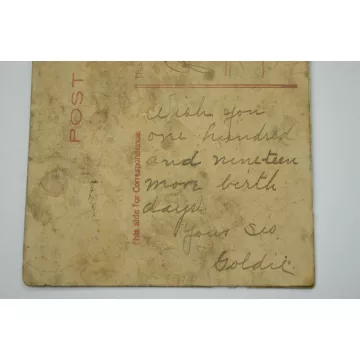 POST
This side for Correspondence
Wish you
one hundred
and nineteen
more birth
days
Your Sis
Goldie